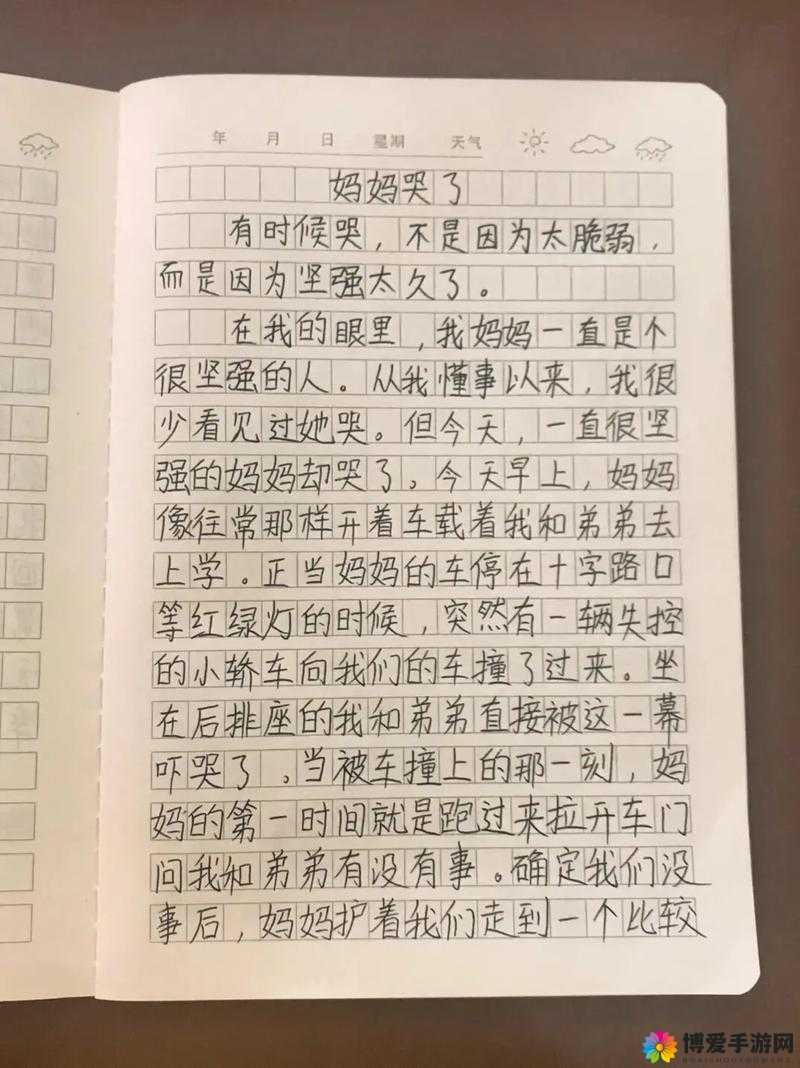 年 月 日 星期 天气
妈妈哭了
有时候哭，不是因为太脆弱，
而是因为坚强太久了。
在我的眼里，我妈妈一直是个
很坚强的人。从我懂事以来，我很
少看见过她哭。但今天，一直很坚
强的妈妈却哭了。今天早上，妈妈
像往常那样开着车载着我和弟弟去
上学。正当妈妈的车停在十字路口
等红绿灯的时候，突然有一辆失控
的小轿车向我们的车撞了过来。坐
在后排座的我和弟弟直接被这一幕
吓哭了。当被车撞上的那一刻，妈
妈的第一时间就是跑过来拉开车门
问我和弟弟有没有事。确定我们没
事后，妈妈护着我们走到一个比较
博爱手游网